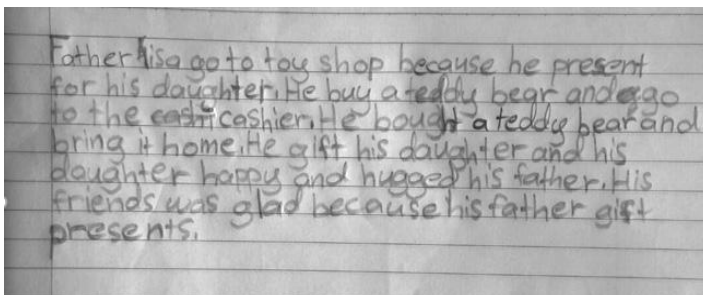 Father hisa go to toy shop because he present
for his daughter. He buy a teddy bear and go
to the cashier. He bought a teddy bear and
bring it home. He gift his daughter and his
daughter happy and hugged his father. His
friends was glad because his father gift
presents.